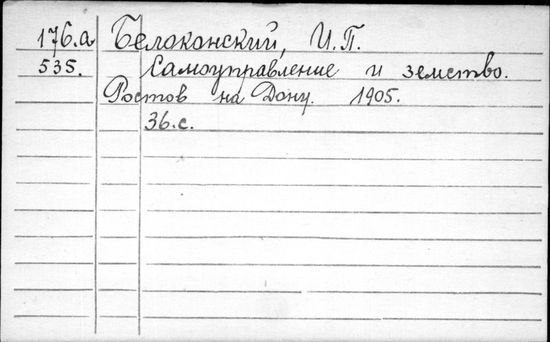 176.a Белоконский, И.П.
535. Самоуправление и земство.
Ростов на Дону. 1905.
36.с.